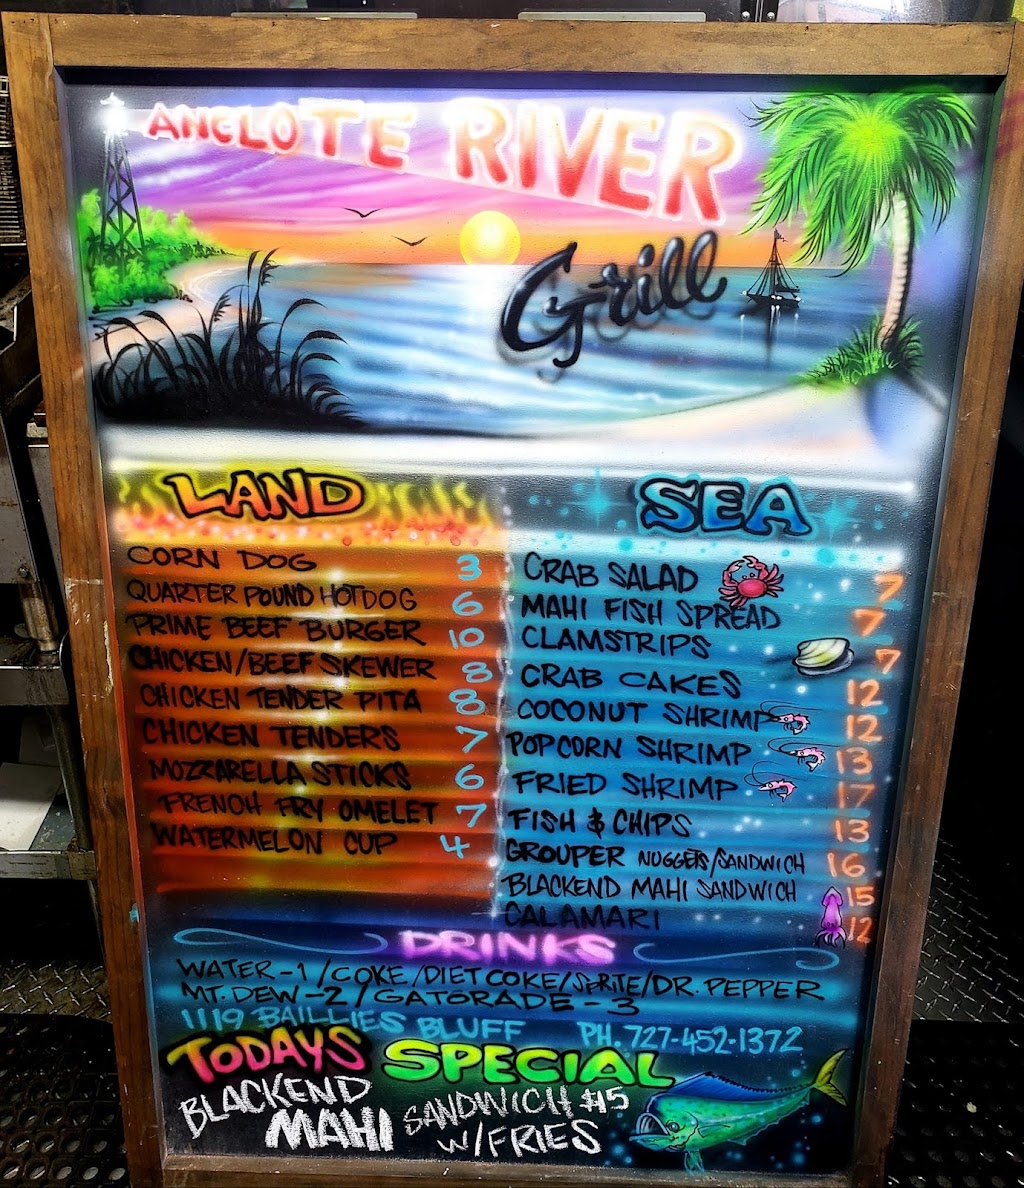 ANCLOTE RIVER
Grill
LAND
CORN DOG 3
QUARTER POUND HOTDOG 6
PRIME BEEF BURGER 10
CHICKEN/BEEF SKEWER 8
CHICKEN TENDER PITA 8
CHICKEN TENDERS 7
MOZZARELLA STICKS 6
FRENCH FRY OMELET 7
WATERMELON CUP 4
SEA
CRAB SALAD 7
MAHI FISH SPREAD 7
CLAMSTRIPS 7
CRAB CAKES 12
COCONUT SHRIMP 12
POPCORN SHRIMP 13
FRIED SHRIMP 17
FISH & CHIPS 13
GROUPER NUGGETS/SANDWICH 16
BLACKEND MAHI SANDWICH 15
CALAMARI 12
DRINKS
WATER-1/COKE/DIET COKE/SPRITE/DR. PEPPER
MT. DEW-2/GATORADE-3
1119 BAILLIES BLUFF PH. 727-452-1372
TODAYS SPECIAL
BLACKEND MAHI SANDWICH $15
W/FRIES